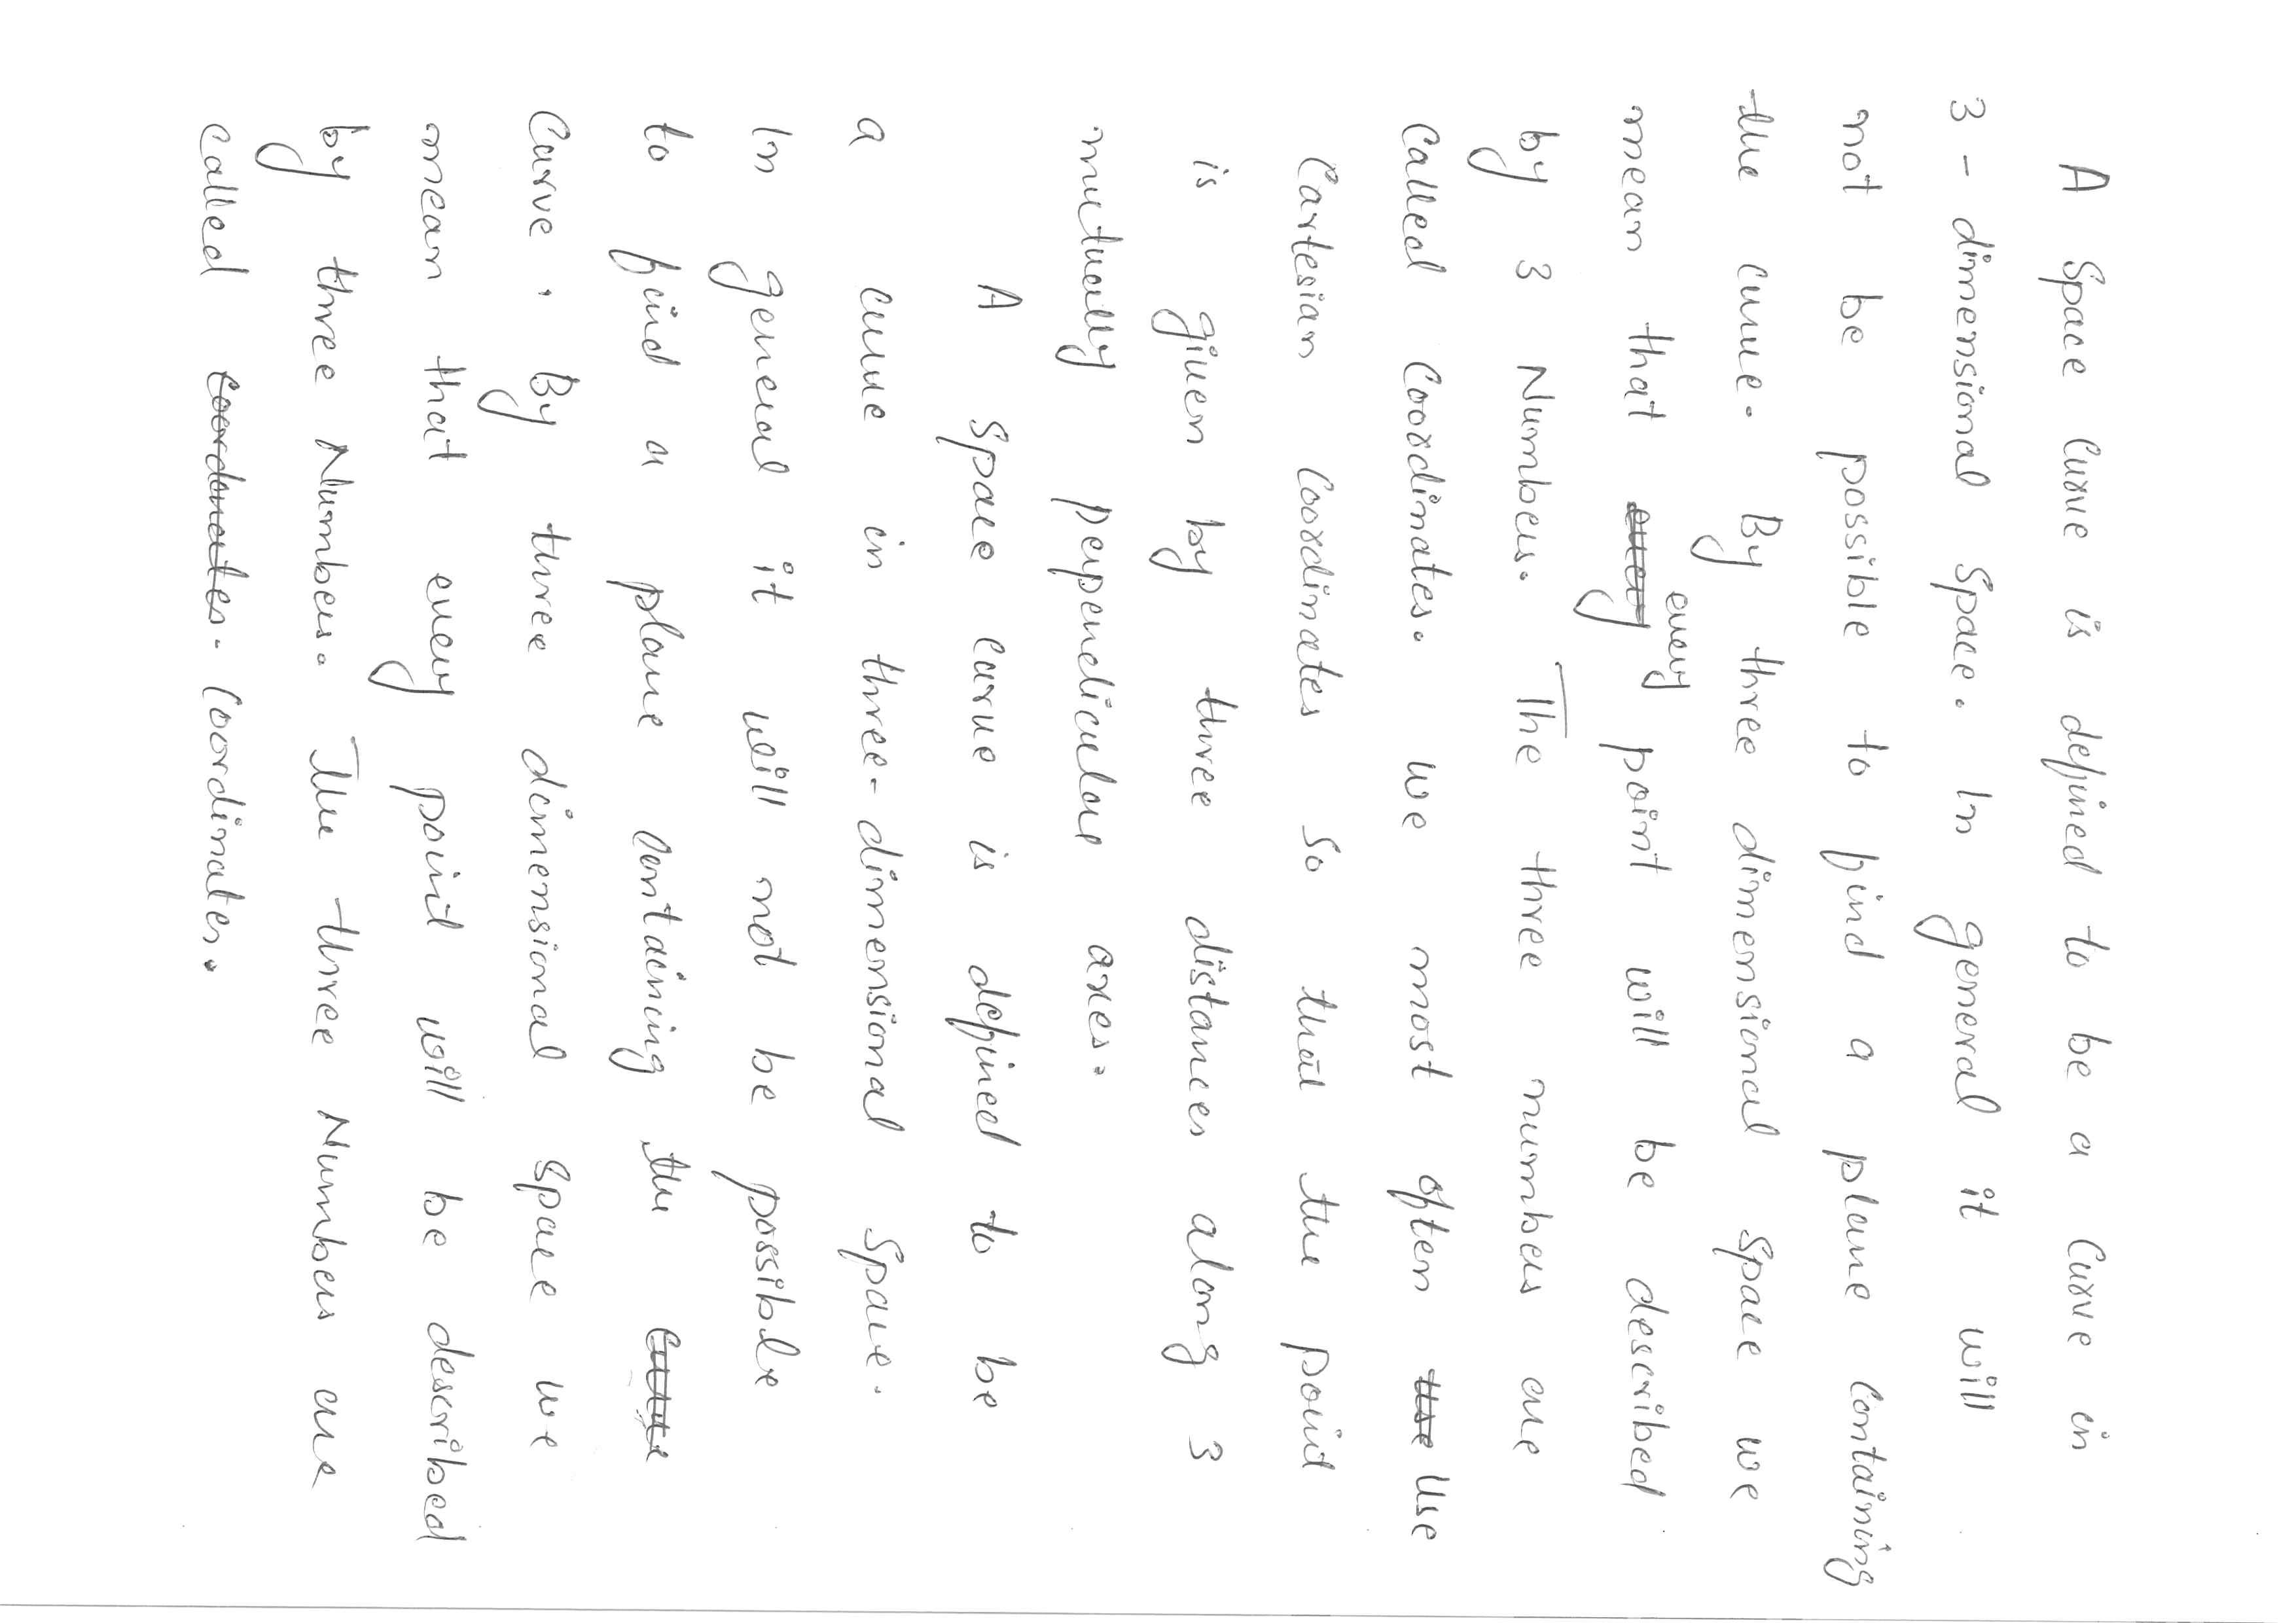 A Space Curve is defined to be a Curve in
3 - dimensional Space. In general it will
not be possible to find a plane containing
the curve. By three dimensional space we
mean that ~~every~~ every point will be described
by 3 Numbers. The three numbers are
Called Coordinates. we most often ~~use~~ Use
Cartesian Coordinates So that the point
is given by three distances along 3
mutually perpendicular axes.
A space curve is defined to be
a curve in three-dimensional Space.
In general it will not be possible
to find a plane containing the ~~Curve~~
Curve. By three dimensional space we
mean that every point will be described
by three Numbers. The three Numbers are
called ~~coordenates~~. Coordinates.